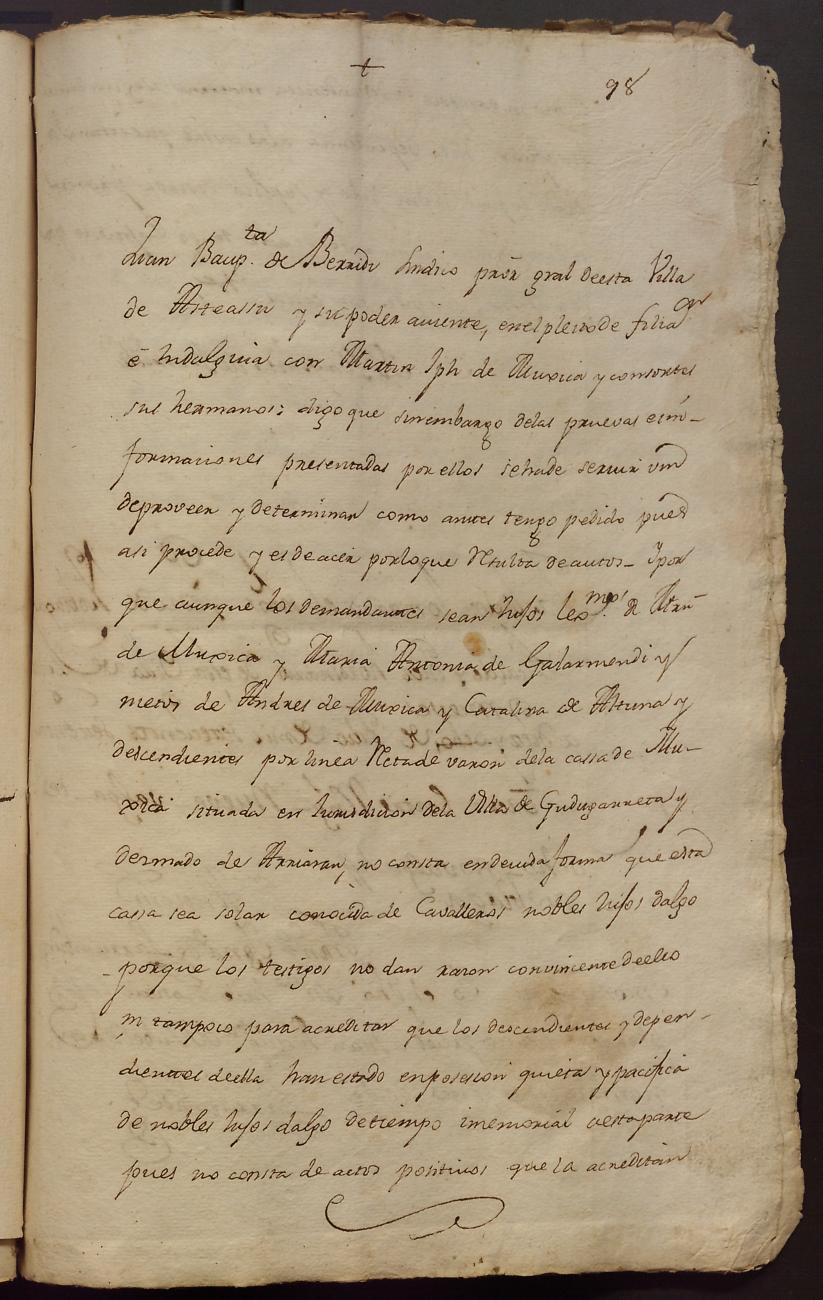 +
98
Juan Baup.ta de Berridi sindico prōr gral deesta Villa
de Asteassu y su poder auiente, en el pleito de filiaon
é hidalguia con Martin Jph de Muxica y consortes
sus hermanos: digo que sinembargo delas pruevas é in-
formaciones presentadas por ellos sehade seruir vmd
deproveer y determinar como antes tengo pedido pues
asi procede y es de acer porloque Resulta de autos- Ypor
que aunque los demandantes sean hijos lexmos. de Mrn
de Muxica y Maria Antonia de Galarmendi y
nietos de Andres de Muxica y Catalina de Altuna y
descendientes por linea Recta de varon dela cassa de Mu-
xica situada en Jurisdicion dela Villa de Gudugarreta y
dermado de Arriaran, no consta endeuida forma que esta
cassa sea solar conocida de Cavalleros nobles hijos dalgo
porque los testigos no dan raron convincente deello
ni tampoco para acreditar que los descendientes y depen-
dientes deella han estado enposesion quieta y pacifica
de nobles hijos dalgo detiempo imemorial aestaparte
pues no consta de actos positiuos que la acreditan